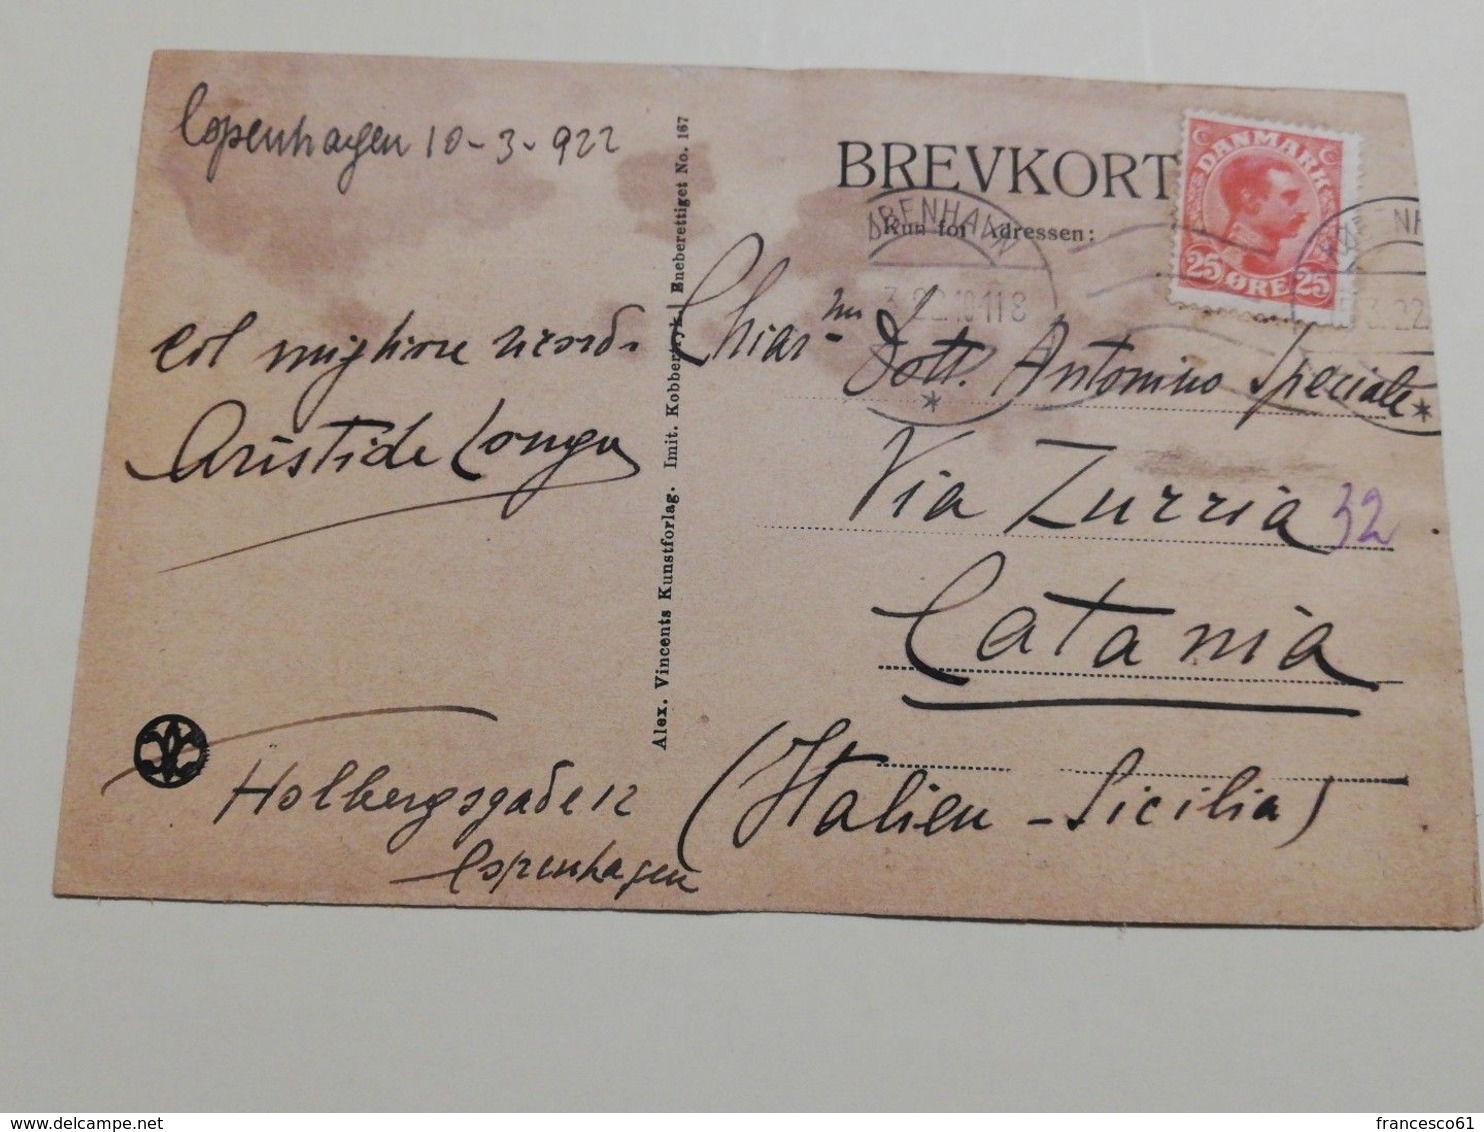 Copenhagen 10-3-922
col migliore ricordo
Aristide Longu
Holbergsgade 12
Copenhagen
Alex. Vincents Kunstforlag. Imit. Kobbertryk. Eneberettiget No. 167
BREVKORT
Kun for Adressen:
DANMARK
25 ØRE 25
KØBENHAVN
3.22.10-11 8
Chiar.mo Dott. Antonino Speciale
Via Zurria 32
Catania
(Italien - Sicilia)
francesco61